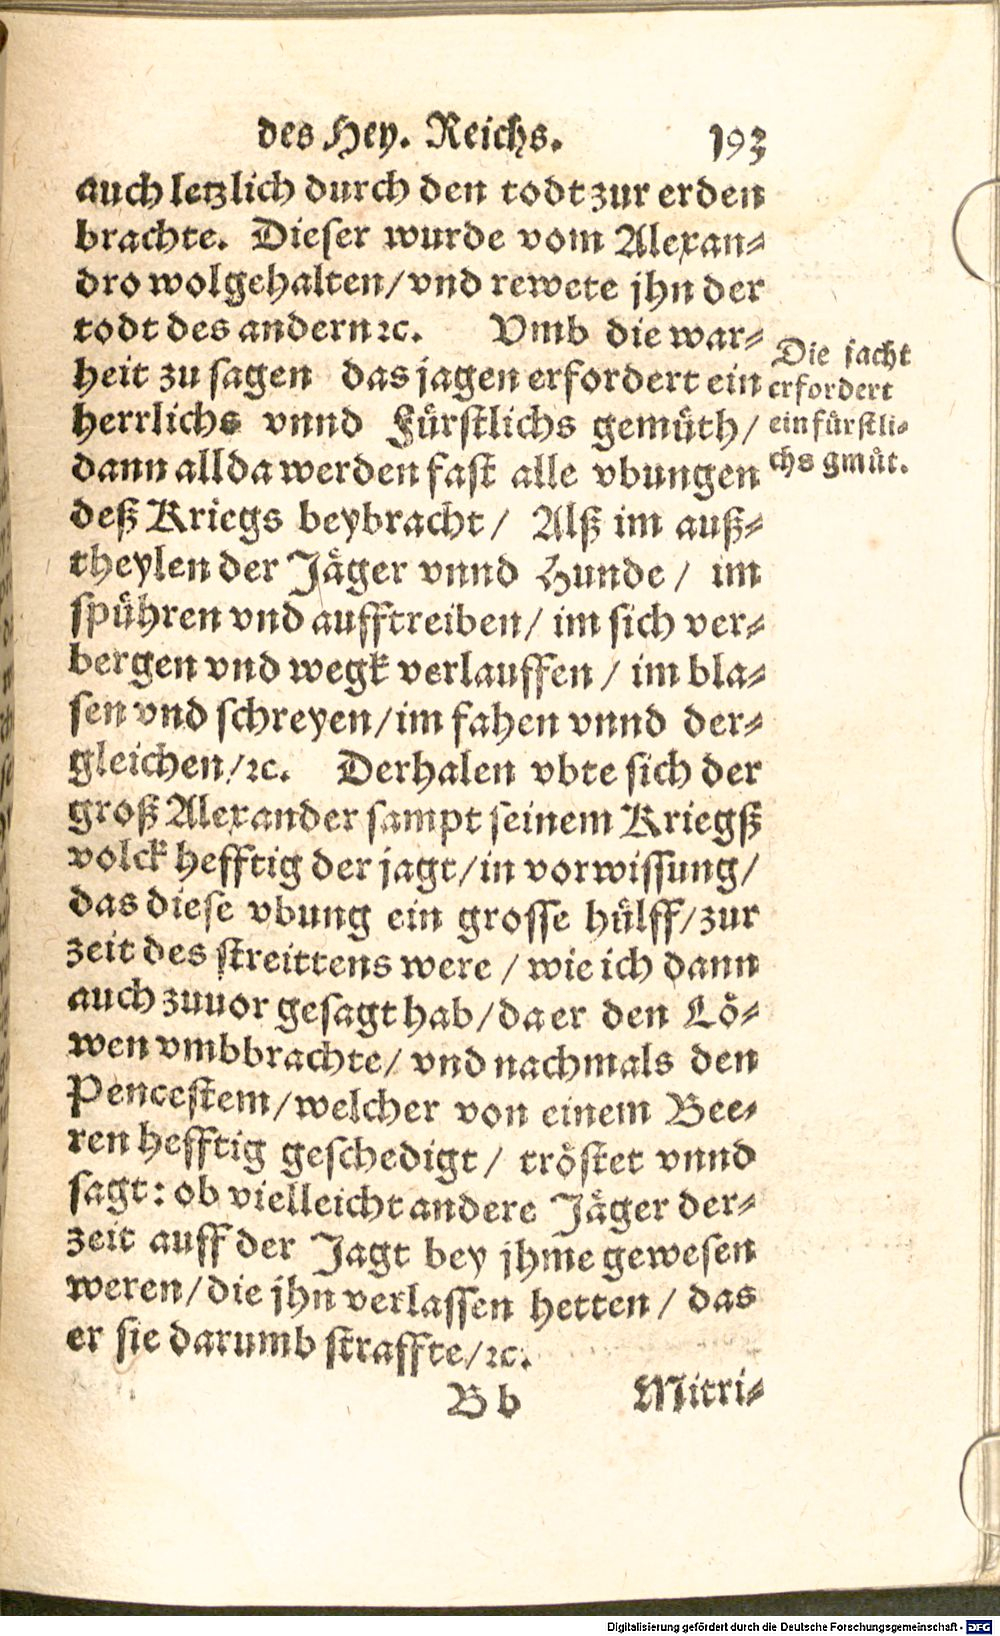 des Hey. Reichs. 193
auch letzlich durch den todt zur erden
brachte. Dieser wurde vom Alexan-
dro wolgehalten/vnd rewete jhn der
todt des andern ꝛc. Vmb die war-
heit zu sagen das jagen erfordert ein
herrlichs vnnd Fürstlichs gemüth/
dann allda werden fast alle vbungen
deß Kriegs beybracht/ Alß im auß-
theylen der Jäger vnnd Hunde/ im
spühren vnd aufftreiben/ im sich ver-
bergen vnd wegk verlauffen/ im bla-
sen vnd schreyen/im fahen vnnd der-
gleichen/ꝛc. Derhalen vbte sich der
groß Alexander sampt seinem Kriegß
volck hefftig der jagt/in vorwissung/
das diese vbung ein grosse hülff/zur
zeit des streittens were/wie ich dann
auch zuuor gesagt hab/da er den Lö-
wen vmbbrachte/ vnd nachmals den
Pencestem/welcher von einem Bee-
ren hefftig geschedigt/ tröstet vnnd
sagt: ob vielleicht andere Jäger der-
zeit auff der Jagt bey jhme gewesen
weren/die jhn verlassen hetten/ das
er sie darumb straffte/ꝛc.
Bb Mitri-
Die jacht
erfordert
ein fürstli-
chs gmüt.
Digitalisierung gefördert durch die Deutsche Forschungsgemeinschaft - DFG